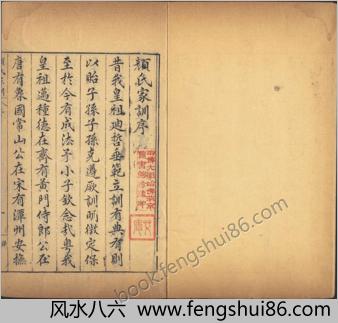 顔氏家訓序
昔我皇祖迪哲垂範立訓有典有則
以貽子孫子孫克遵厥訓明徵定保
至於今有成法予小子欽念哉粤我
皇祖邁種德在齊有黃門侍郎公在
唐有魯國常山公在宋有潭州安撫
book.fengshui86.com
风水八六 www.fengshui86.com